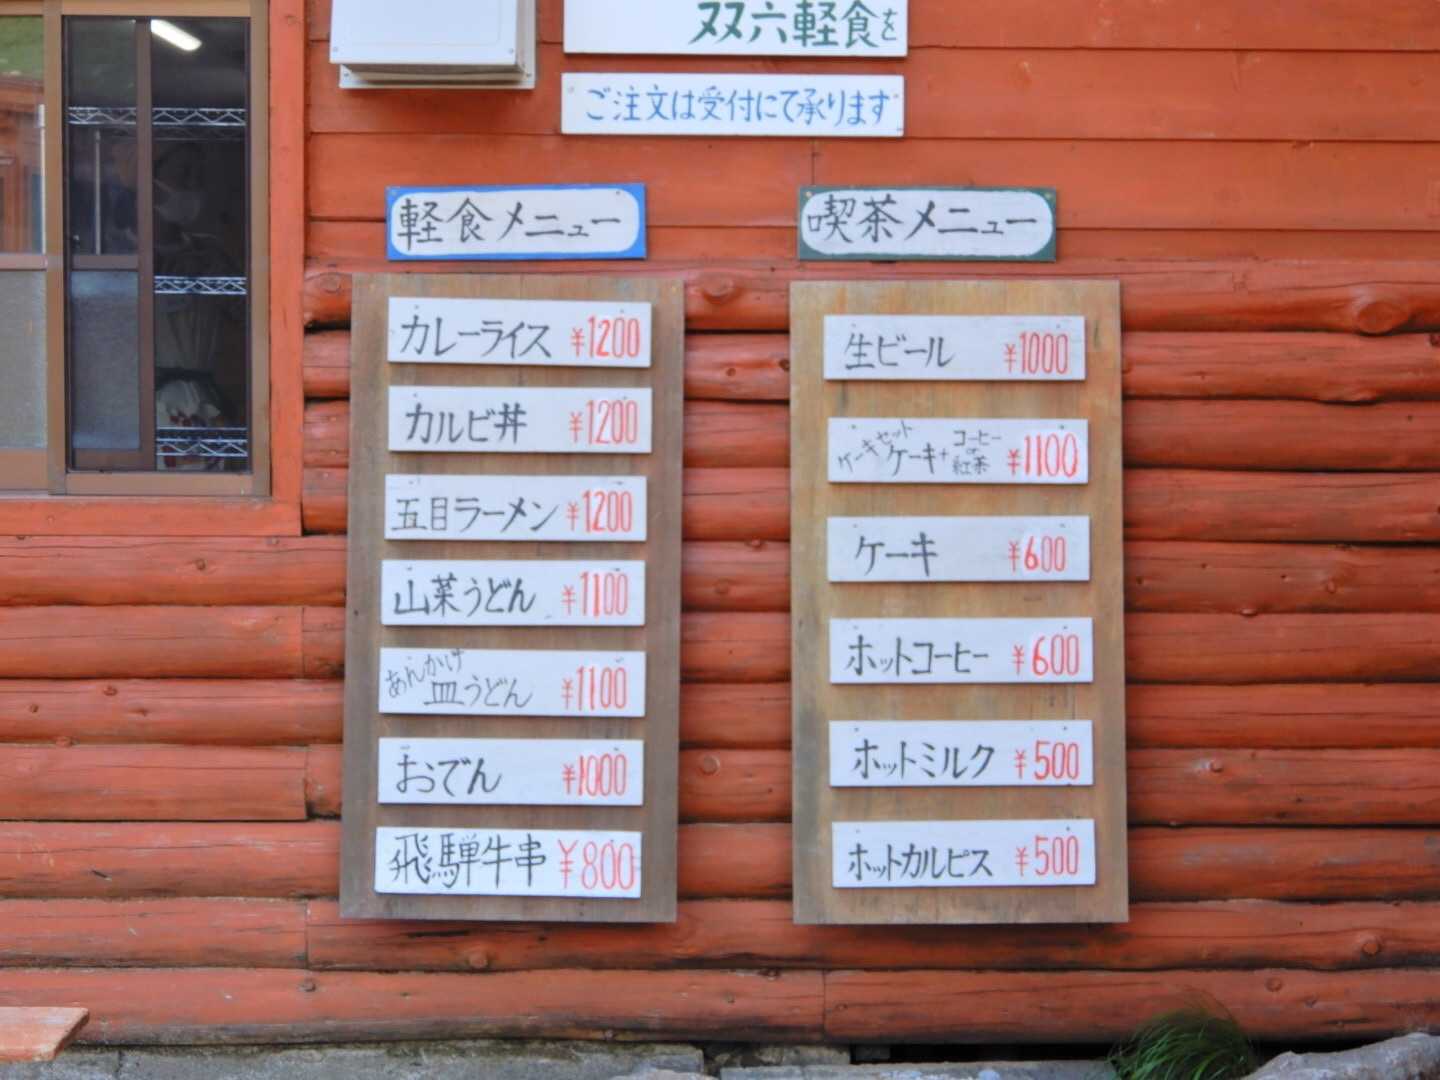 双六軽食を
ご注文は受付にて承ります
軽食メニュー
カレーライス ¥1200
カルビ丼 ¥1200
五目ラーメン ¥1200
山菜うどん ¥1100
あんかけ
皿うどん ¥1100
おでん ¥1000
飛騨牛串 ¥800
喫茶メニュー
生ビール ¥1000
ケーキセット
ケーキ+ コーヒー or 紅茶 ¥1100
ケーキ ¥600
ホットコーヒー ¥600
ホットミルク ¥500
ホットカルピス ¥500